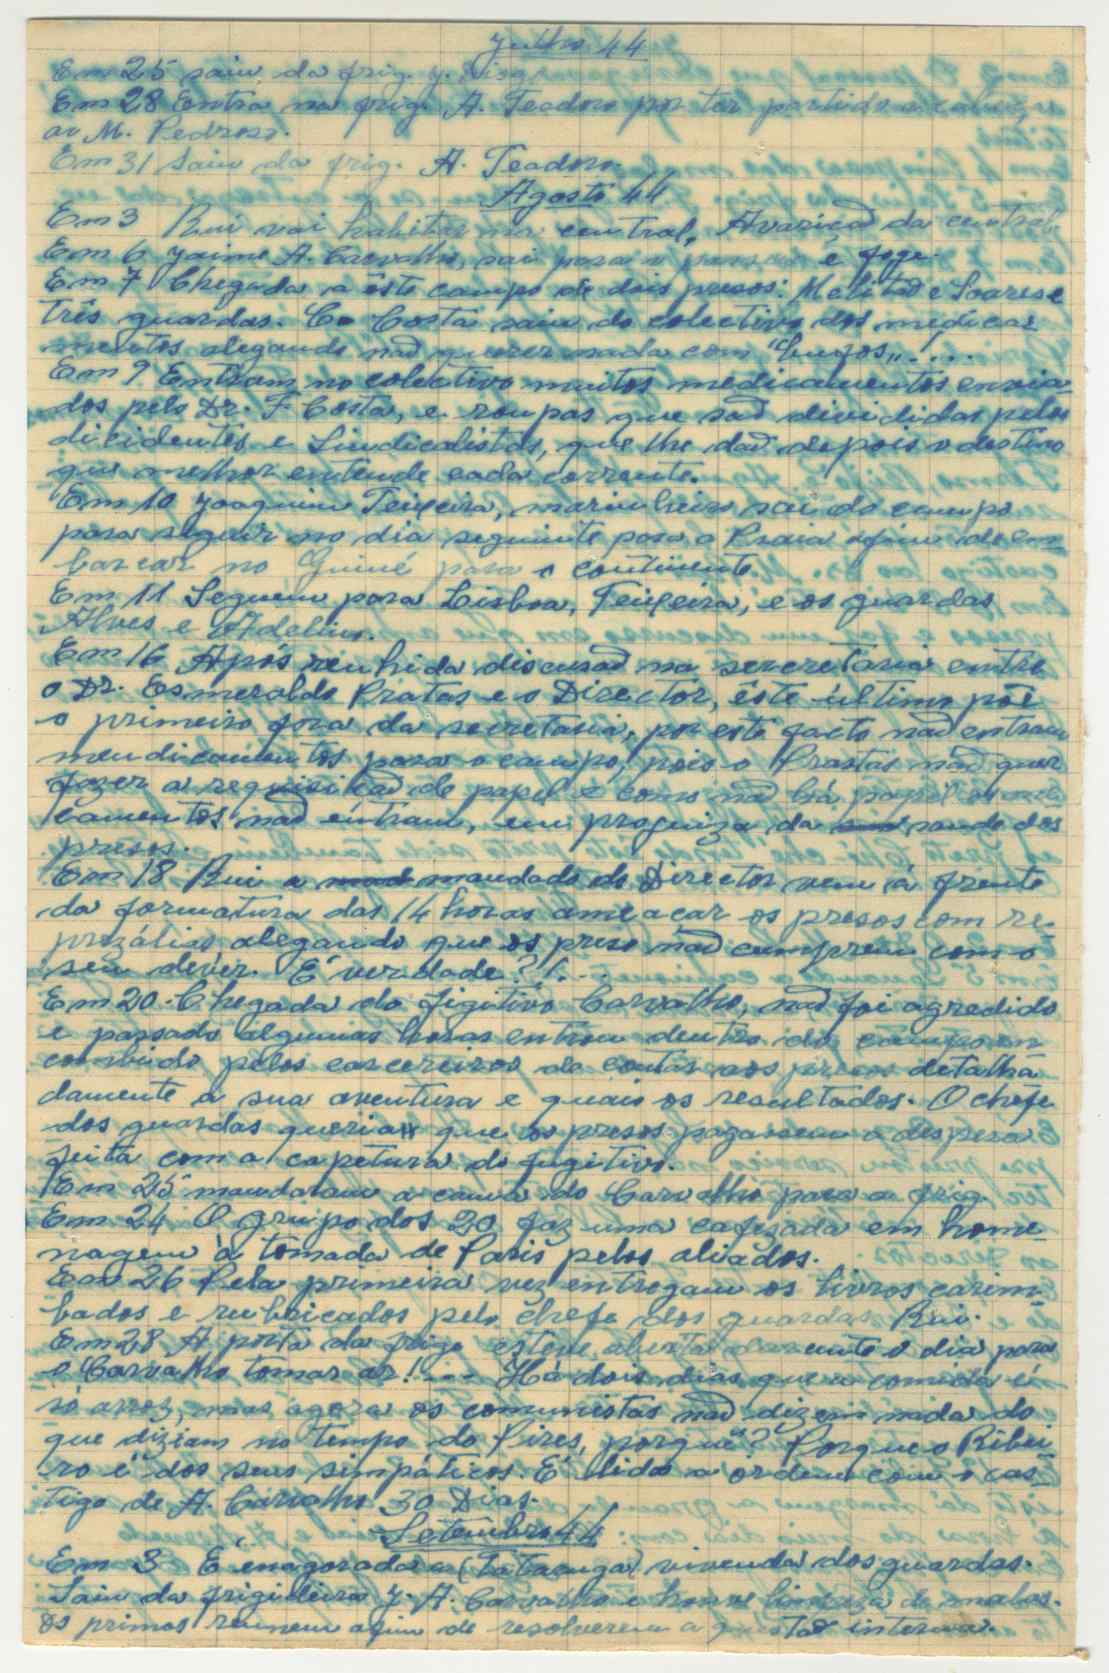 Julho 44
Em 25 saiu da frig. J.
Em 28 Entra na frig. A. Teodoro por ter partido a cabeça
ao M. Pedroso.
Em 31 Saiu da frig. A. Teodoro.
Agosto 44
Em 3 Rui vai habitar na central, Avariação da central
Em 6 Jaime A. Carvalho, sai para o e foge.
Em 7 Chegada a êste campo de dois presos: Melitão e Soares e
três guardas. C. Costa saiu do colectivo dos medica=
mentos alegando não querer nada com "bufos"....
Em 9 Entram no colectivo muitos medicamentos envia
dos pelo Dr. F. Costa, e roupas que são divididas pelos
dicidentes e Sindicalistas, que lhe dão depois o destino
que melhor entende cada corrente.
Em 10 Joaquim Teixeira, marinheiro sai do campo
para seguir no dia seguinte para a Praia afim de em
barcar no Guiné para o continente.
Em 11 Seguem para Lisboa, Teixeira, e os guardas
Alves e Adelino.
Em 16 Após renhida discusão na secretaria entre
o Dr. Esmeraldo Pratas e o Director, êste último põe
o primeiro fora da secretaria, por este facto não entram
mendicamentos para o campo, pois o Prastas não quer
fazer a requisição de papel e como não há papel os medi
camentos não éntram, em progeuiza da saude dos
presos.
Em 18 Rui a mandado do Director vem á frente
da formatura das 14 horas ameaçar os presos com re-
prezálias alegando que os preso não cumprem com o
seu dever. É verdade?!...
Em 20-Chegada do figitivo Carvalho, não foi agredido
e passado algumas horas entrou dentro do campo en
convido pelos carcereiros a contar aos presos detalhá
damente a sua aventura e quais os resultados. O chefe
dos guardas queria que os presos pagassem a despesa
feita com a capetura do fugitivo.
Em 25 mandaram a cama do Carvalho para a frig.
Em 24 O grupo dos 20 faz uma cafesada em home-
nagem à tomada de Paris pelos aliados.
Em 26 Pela primeira vez entregam os livros carim-
bados e rubricados pelo chefe dos guardas Rui.
Em 28 A porta da frige esteve aberta durante o dia para
o Carvalho tomar ar!... Há dois dias que a comida é
só arroz, mas agora os comunistas não dizem nada do
que diziam no tempo do Pires, porquê? Porque o Ribei
ro é dos seus simpáticos. É lida a ordem com o cas
tigo de A. Carvalho 30 Dias.
Setembro 44
Em 3 É enagorada a (Tataruga) vivenda dos guardas.
Saiu da frigideira J. A. Carvalho e houve limpeza de malas.
Os primos reunem afim de resolverem a questão interna.